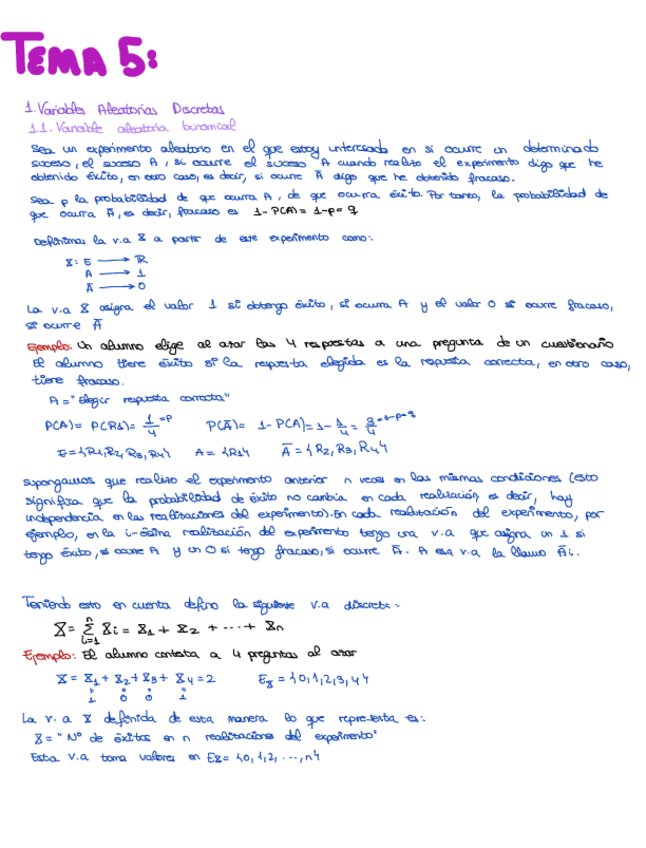 TEMA 5:
1. Variables Aleatorias Discretas
1.1. Variable aleatoria binomial
Sea un experimento aleatorio en el que estoy interesado en si ocurre un determinado
suceso, el suceso A, si ocurre el suceso A cuando realizo el experimento digo que he
obtenido éxito, en otro caso, es decir, si ocurre Ā digo que he obtenido fracaso.
Sea p la probabilidad de que ocurra A, de que ocurra éxito. Por tanto, la probabilidad de
que ocurra Ā, es decir, fracaso es 1-P(A)= 1-p= q
Definimos la v.a X a partir de este experimento como:
X: E → R
A → 1
Ā → 0
La v.a X asigna el valor 1 si obtengo éxito, si ocurre A y el valor 0 si ocurre fracaso,
si ocurre Ā
Ejemplo: Un alumno elige al azar las 4 respuestas a una pregunta de un cuestionario
El alumno tiene éxito si la respuesta elegida es la respuesta correcta, en otro caso,
tiene fracaso.
A = "Elegir respuesta correcta"
P(A)= P(R1)= 1/4 =p P(Ā)= 1-P(A)= 1- 1/4 = 3/4 =1-p=q
E={R1,R2,R3,R4} A={R1} Ā={R2,R3,R4}
Supongamos que realizo el experimento anterior n veces en las mismas condiciones (esto
significa que la probabilidad de éxito no cambia en cada realización, es decir, hay
independencia en las realizaciones del experimento). En cada realización del experimento, por
ejemplo, en la i-ésima realización del experimento tengo una v.a que asigna un 1 si
tengo éxito, si ocurre A y un 0 si tengo fracaso, si ocurre Ā. A esa v.a la llamo Āi.
Teniendo esto en cuenta defino la siguiente v.a discreta:
X= n Σ i=1 Xi = X1 + X2 + ... + Xn
Ejemplo: El alumno contesta a 4 preguntas al azar
X = X1 + X2 + X3 + X4 = 2 Ex = {0,1,2,3,4}
1 0 0 1
La v.a X definida de esta manera lo que representa es:
X = "Nº de éxitos en n realizaciones del experimento"
Esta v.a toma valores en Ex= {0,1,2,...,n}